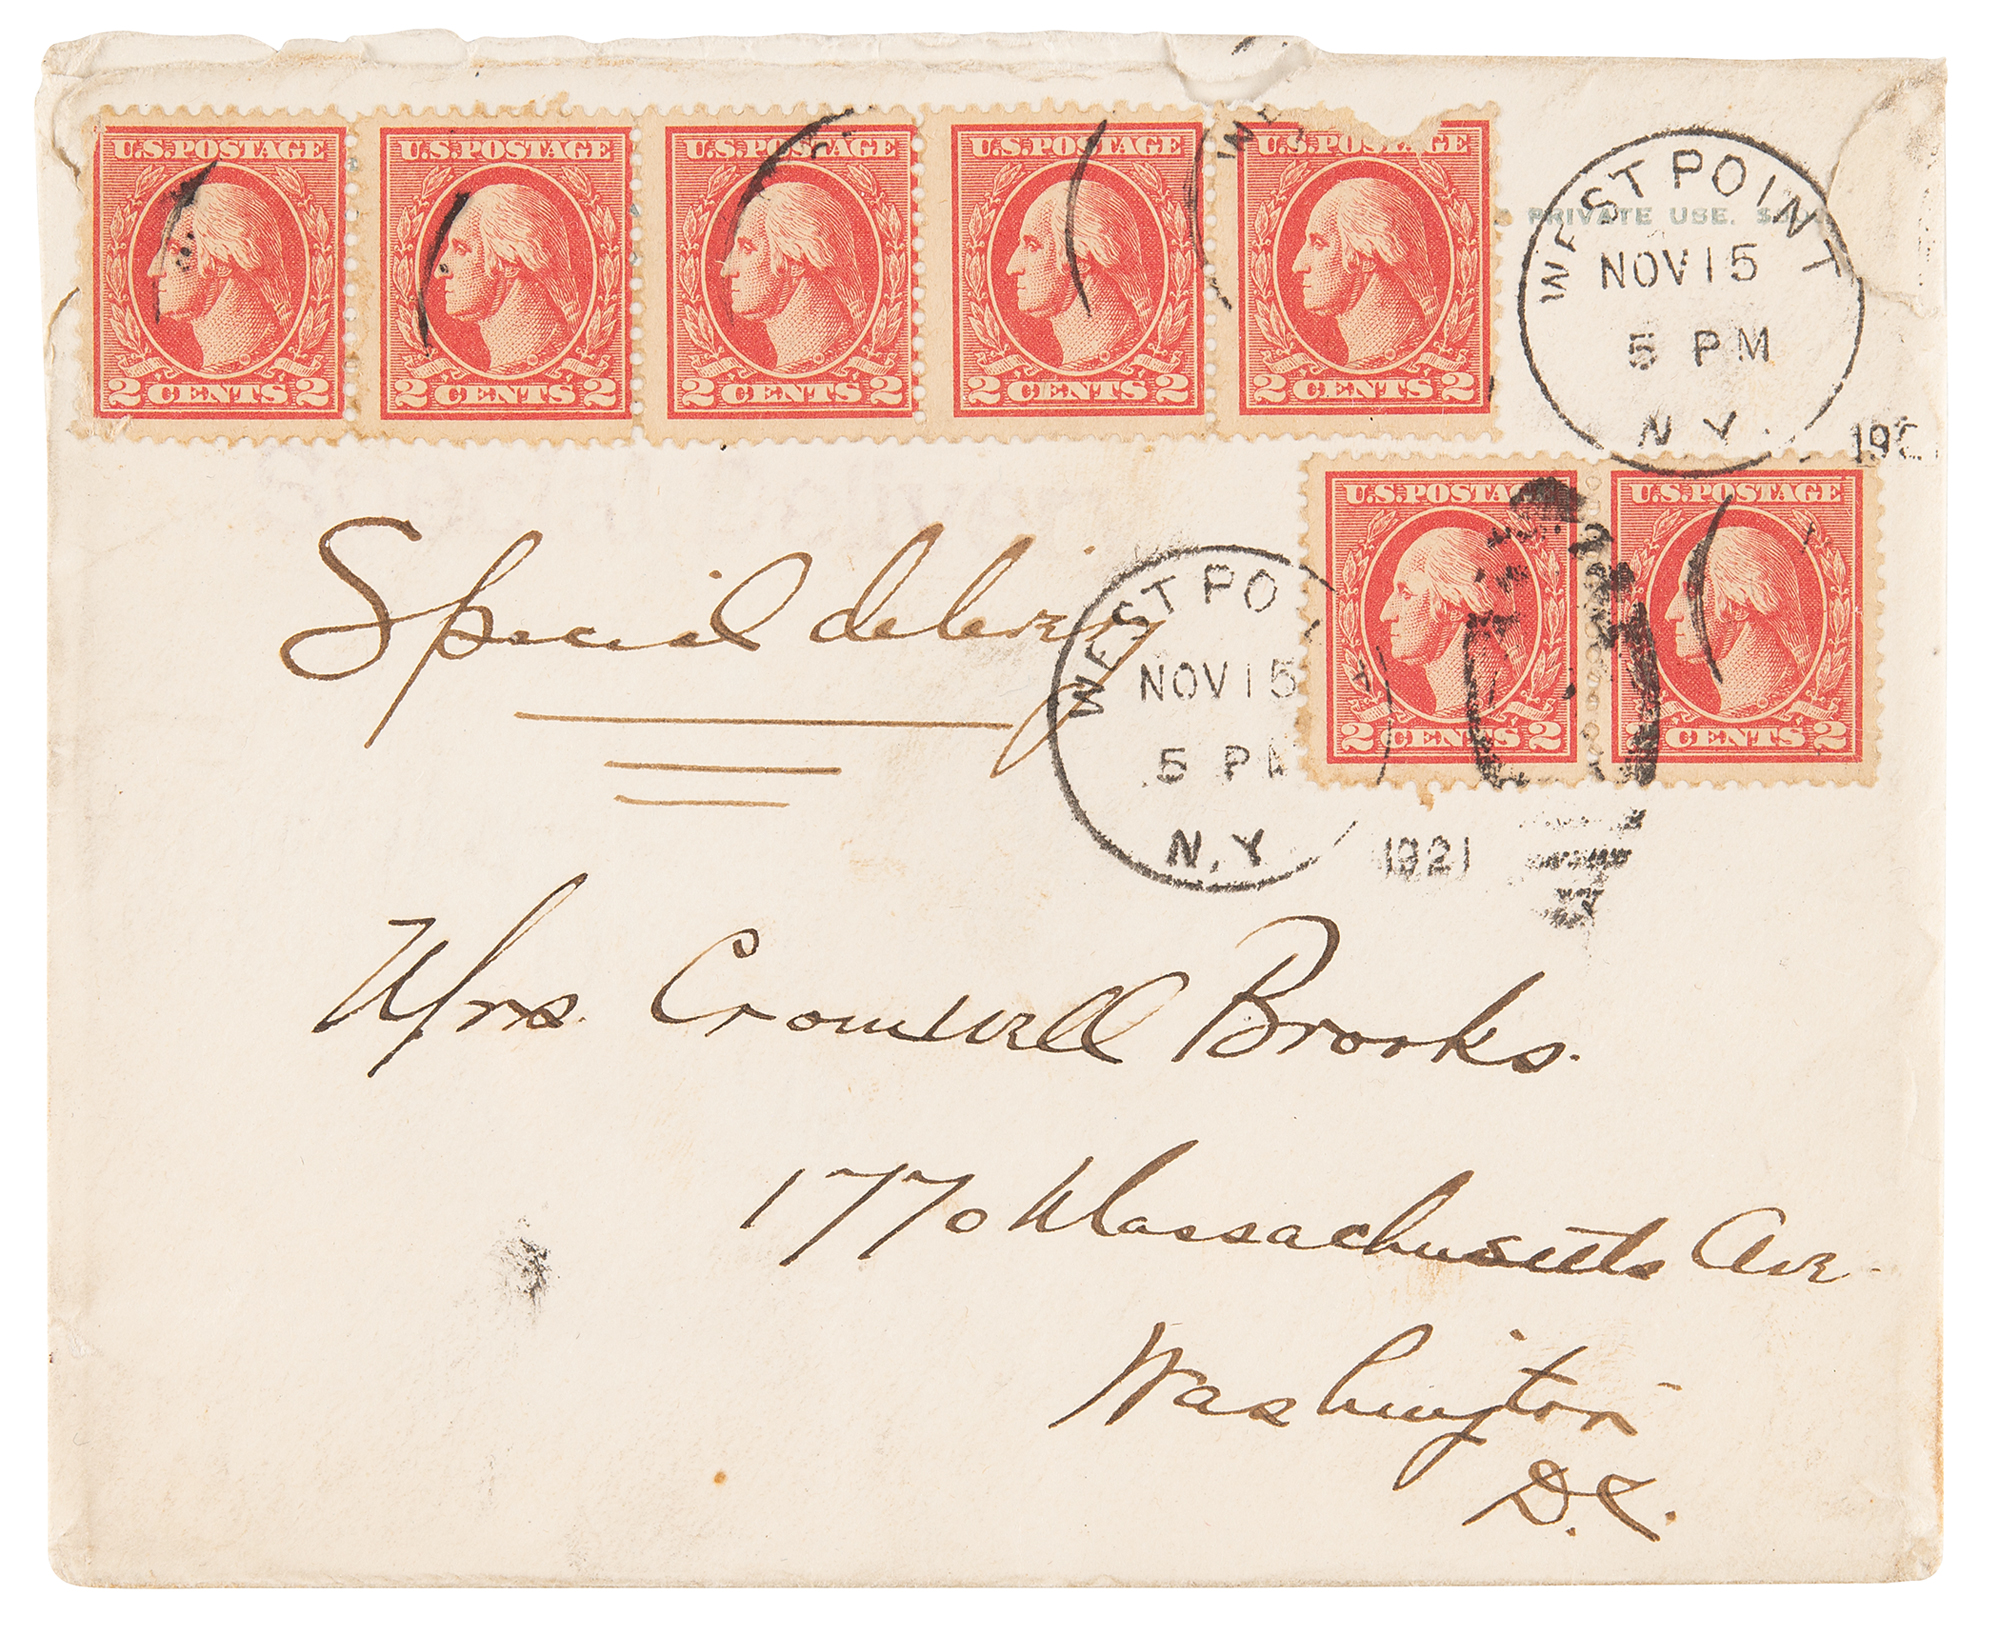 U.S. POSTAGE U.S. POSTAGE U.S. POSTAGE U.S. POSTAGE U.S. POSTAGE
2 CENTS 2 2 CENTS 2 2 CENTS 2 2 CENTS 2 2 CENTS 2
PRIVATE USE.
WEST POINT
NOV 15
5 PM
N.Y.
U.S. POSTAGE U.S. POSTAGE
2 CENTS 2 2 CENTS 2
Special delivery
WEST PO
NOV 15
5 PM
N.Y.
1921
Mrs. Cromwell Brooks.
1770 Massachusetts Ave.
Washington
D.C.